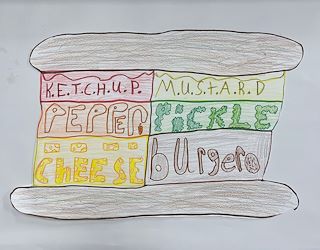 K.E.T.C.H.U.P. M.U.S.T.A.R.D
PEPPER PiCKLE
CHEESE burger